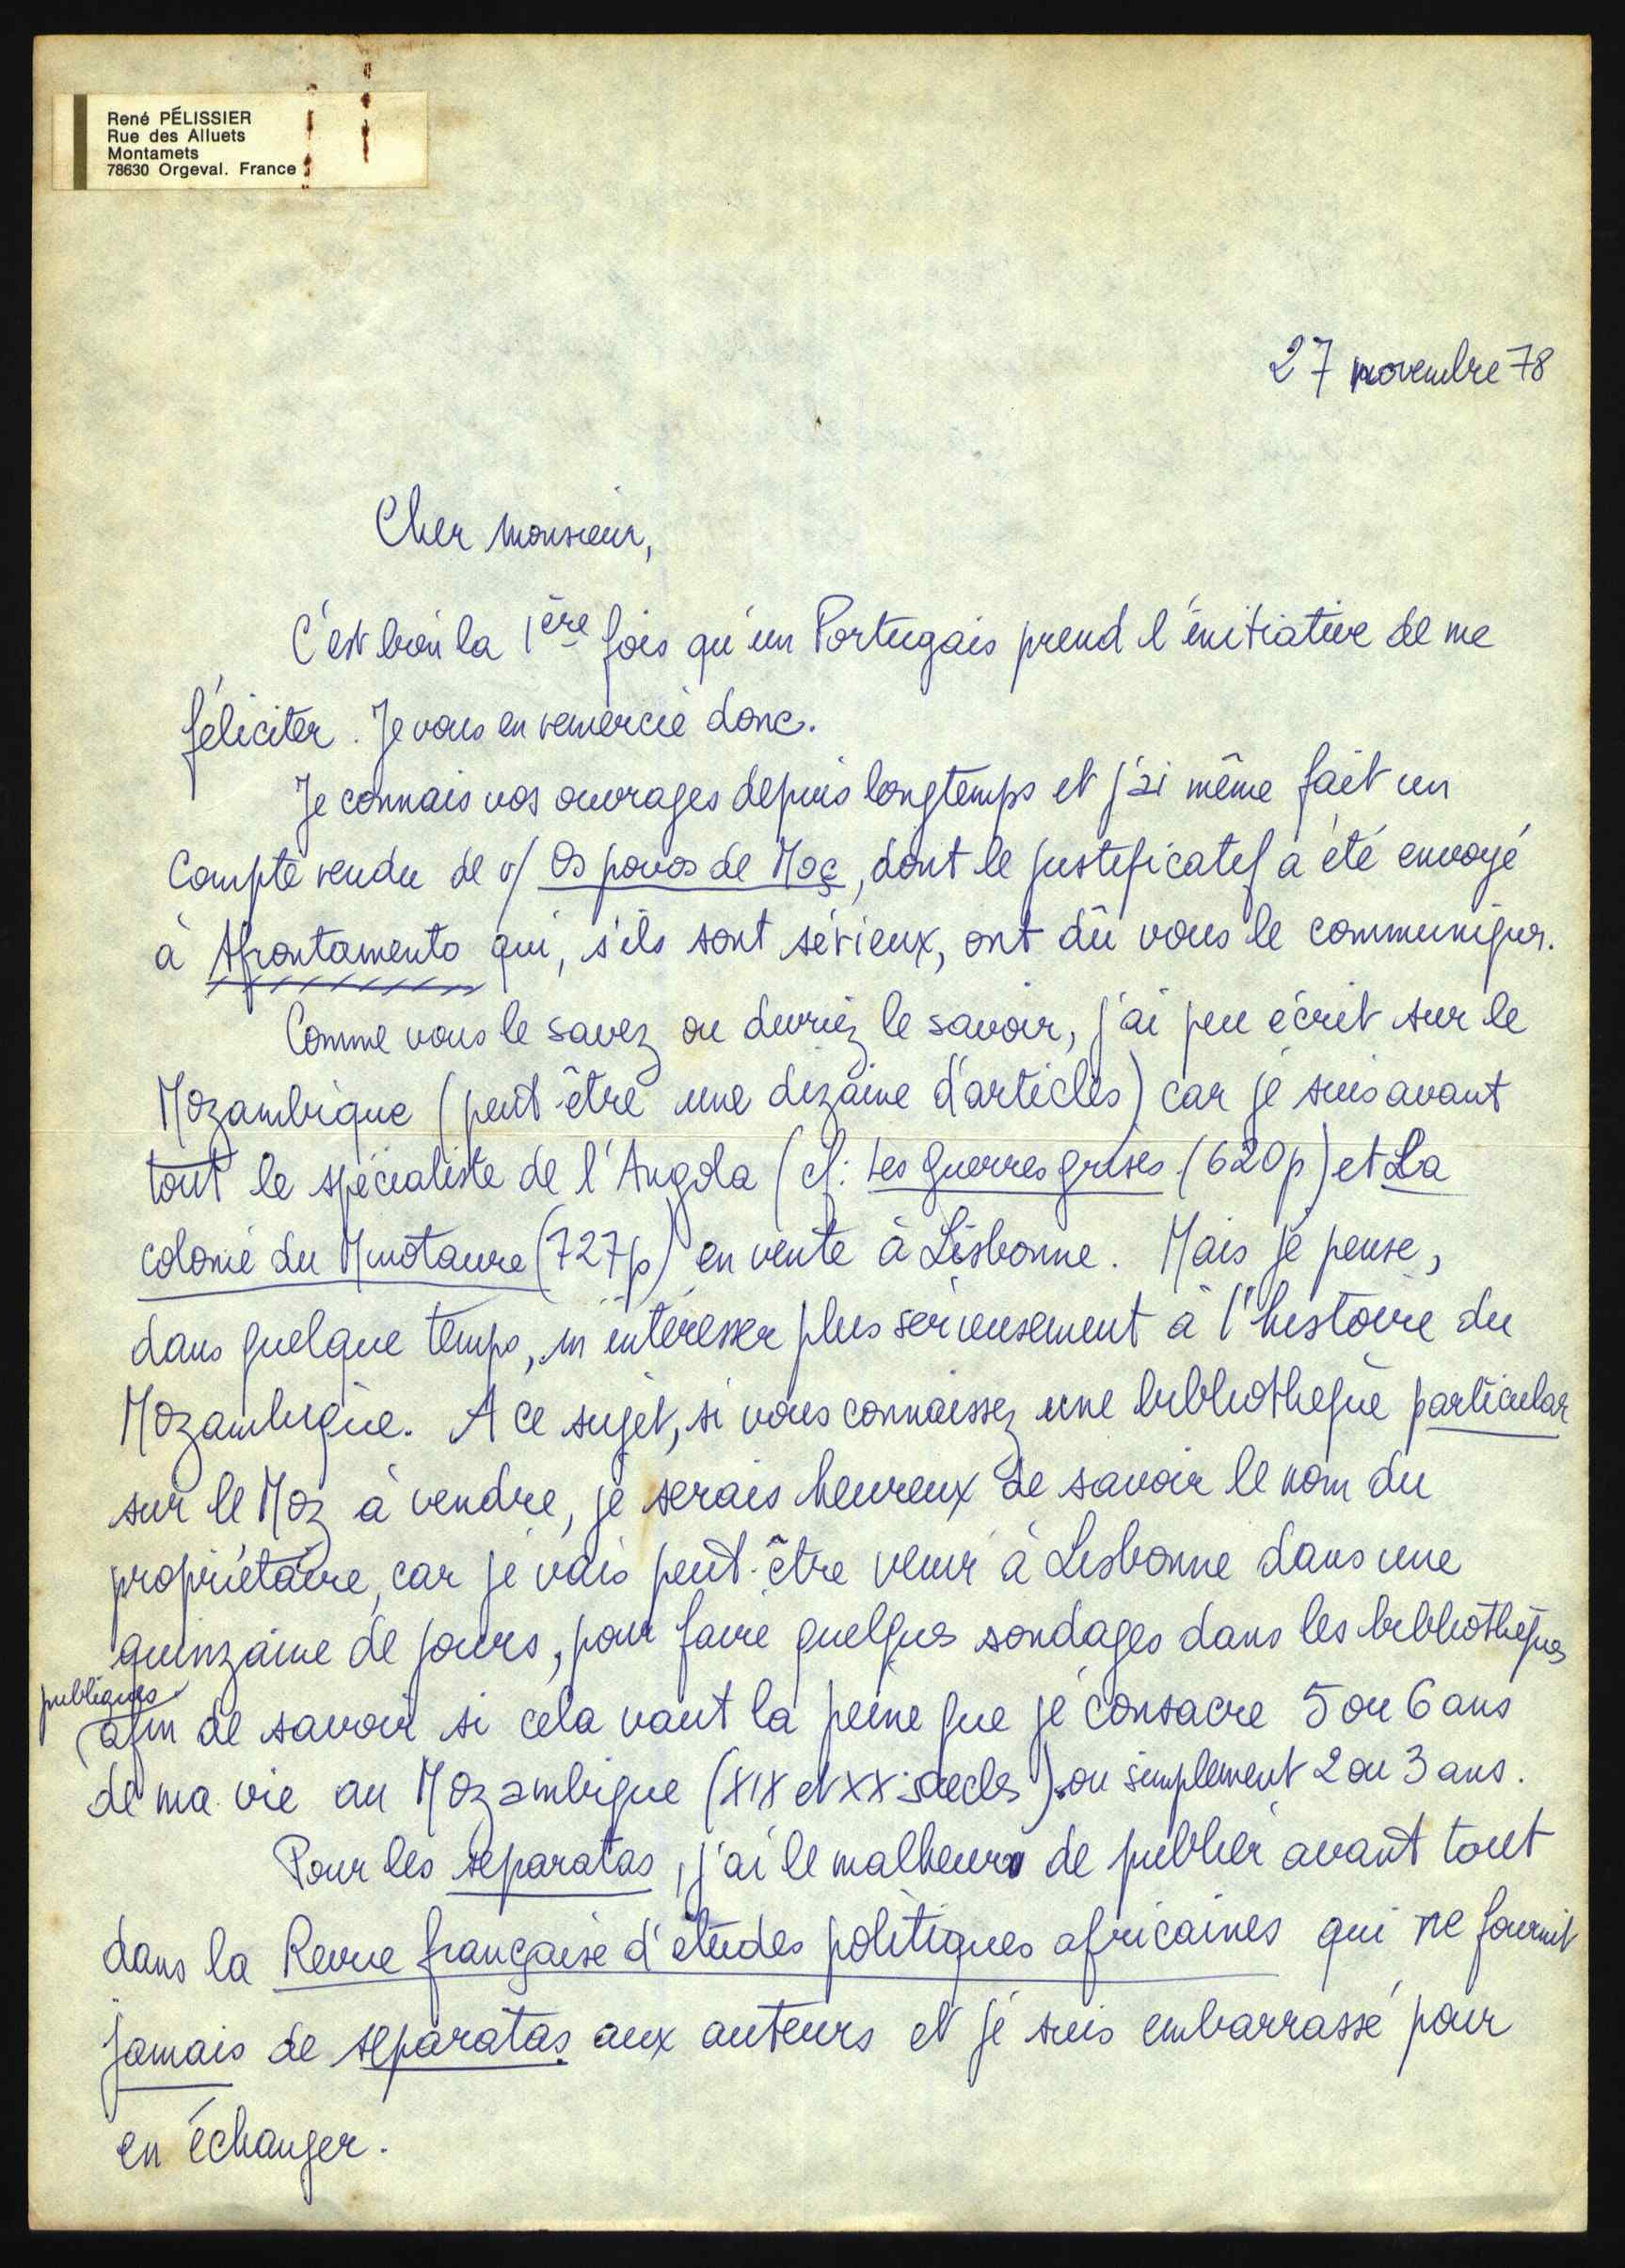 René PÉLISSIER
Rue des Alluets
Montamets
78630 Orgeval. France
27 novembre 78
Cher monsieur,
C'est bien la 1ère fois qu'un Portugais prend l'initiative de me
féliciter. Je vous en remercie donc.
Je connais vos ouvrages depuis longtemps et j'ai même fait un
compte rendu de v/ Os povos de Moç, dont le justificatif a été envoyé
à Afrontamento qui, s'ils sont sérieux, ont dû vous le communiquer.
Comme vous le savez ou devriez le savoir, j'ai peu écrit sur le
Mozambique (peut-être une dizaine d'articles) car je suis avant
tout le spécialiste de l'Angola (cf: Les guerres grises (620p) et La
colonie du Minotaure (727p) en vente à Lisbonne. Mais je pense,
dans quelque temps, m'intéresser plus sérieusement à l'histoire du
Mozambique. A ce sujet, si vous connaissez une bibliothèque particular
sur le Moz à vendre, je serais heureux de savoir le nom du
propriétaire, car je vais peut-être venir à Lisbonne dans une
quinzaine de jours, pour faire quelques sondages dans les bibliothèques
publiques
afin de savoir si cela vaut la peine que je consacre 5 ou 6 ans
de ma vie au Mozambique (XIX et XX siècles) ou simplement 2 ou 3 ans.
Pour les separatas, j'ai le malheur de publier avant tout
dans la Revue française d'études politiques africaines qui ne fournit
jamais de separatas aux auteurs et je suis embarrassé pour
en échanger.